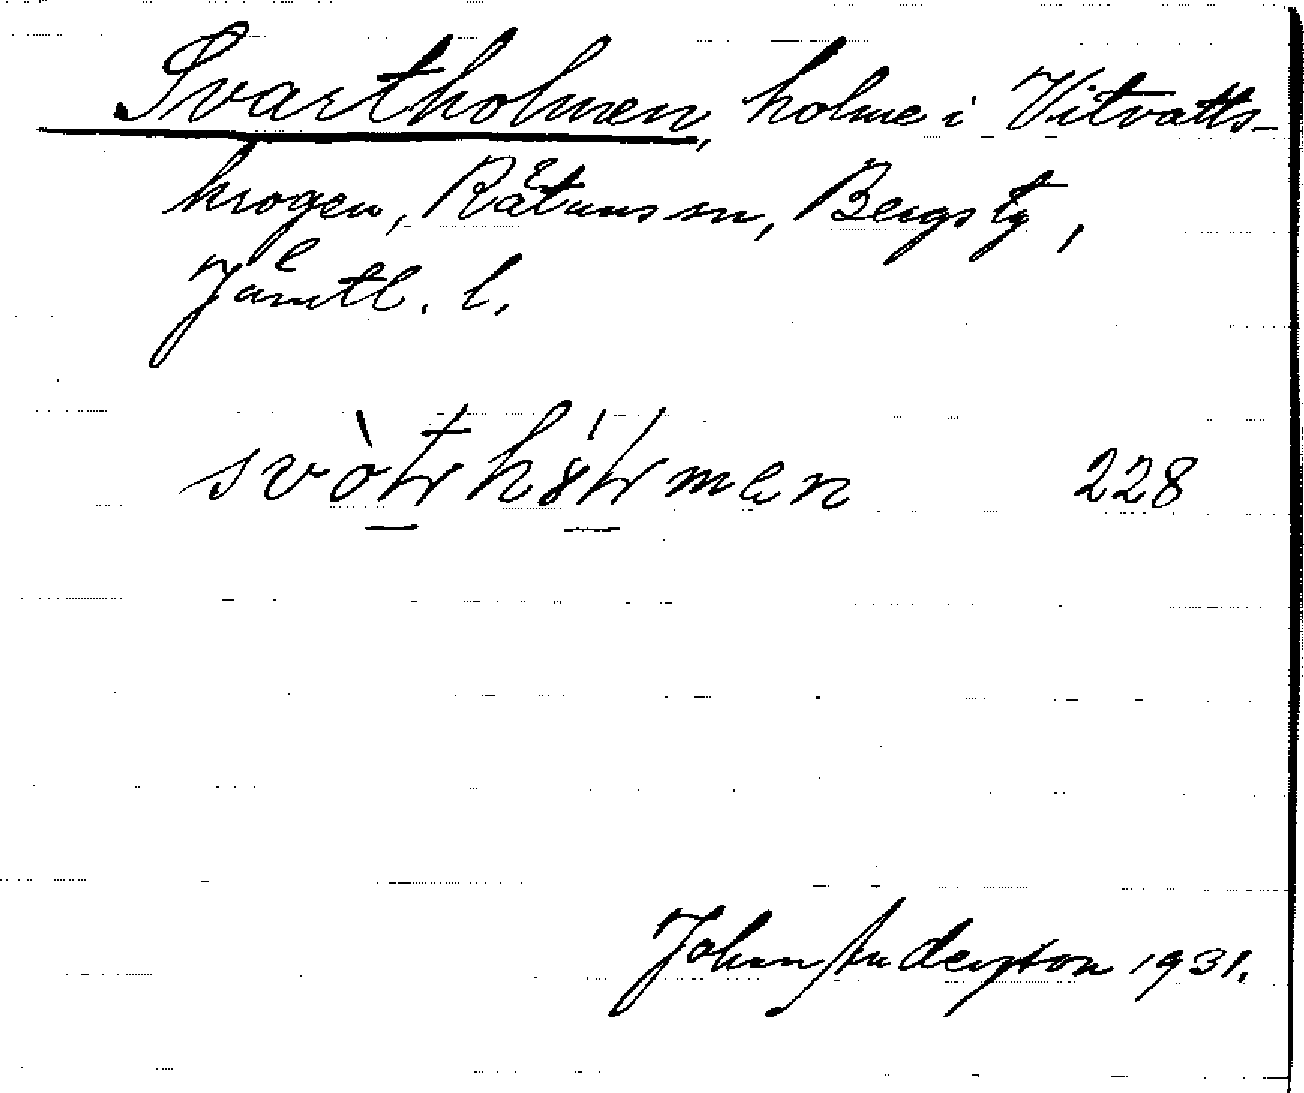 Svartholmen, holme i Vitvatts-
krogen, Rätans sn, Bergs tg,
Jämtl. l.
228
John Andersson 1931.